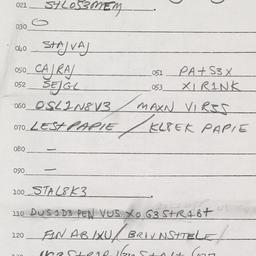 021 StLOS3MEM
030 O
040 StAJVAJ
050 CAJRAJ 051 PAtS3X
052 SEJGL 053 XIRINK
060 OSL2N8V3 / MAXN VIRSS
070 LEStPAPIE / KL8EK PAPIE
080 –
090 –
100 STAL8K3
110 DUS1D3 PEN VUS XO G3StR18t
120 FIN AB IXU / BRIVNSTTELE /